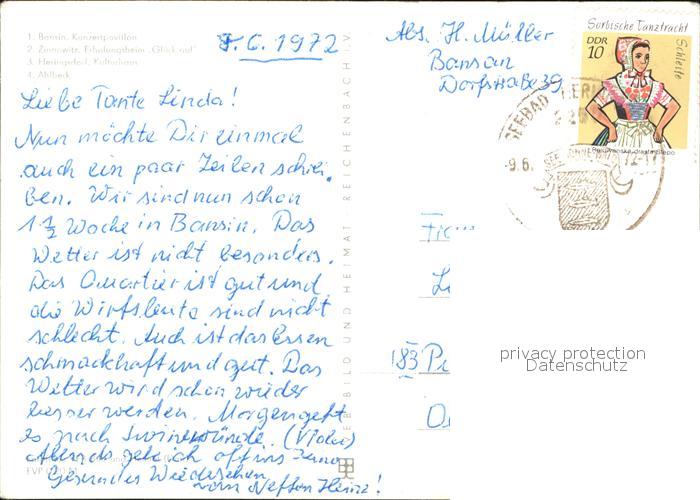 1. Bansin, Konzertpavillon
2. Zinnowitz, Erholungsheim „Glück auf"
3. Heringsdorf, Kulturhaus
4. Ahlbeck
6. 1972
Liebe Tante Linda!
Nun möchte Dir einmal
auch ein paar Zeilen schrei-
ben. Wir sind nun schon
1 1/2 Woche in Bansin. Das
Wetter ist nicht besonders.
Das Quartier ist gut und
die Wirtsleute sind nicht
schlecht. Auch ist das Essen
schmackhaft und gut. Das
Wetter wird schon wieder
besser werden. Morgen geht
es nach Swinemünde.
Abends gehe ich oft ins
Wiedersehen
vom Neffen Heinz!
BILD UND HEIMAT · REICHENBACH I. V.
Abs. H. Müller
Bansin
Dorfstraße 39
Sorbische Tanztracht
Schleife
DDR
10
SEEBAD
-9.6.
183
privacy protection
Datenschutz